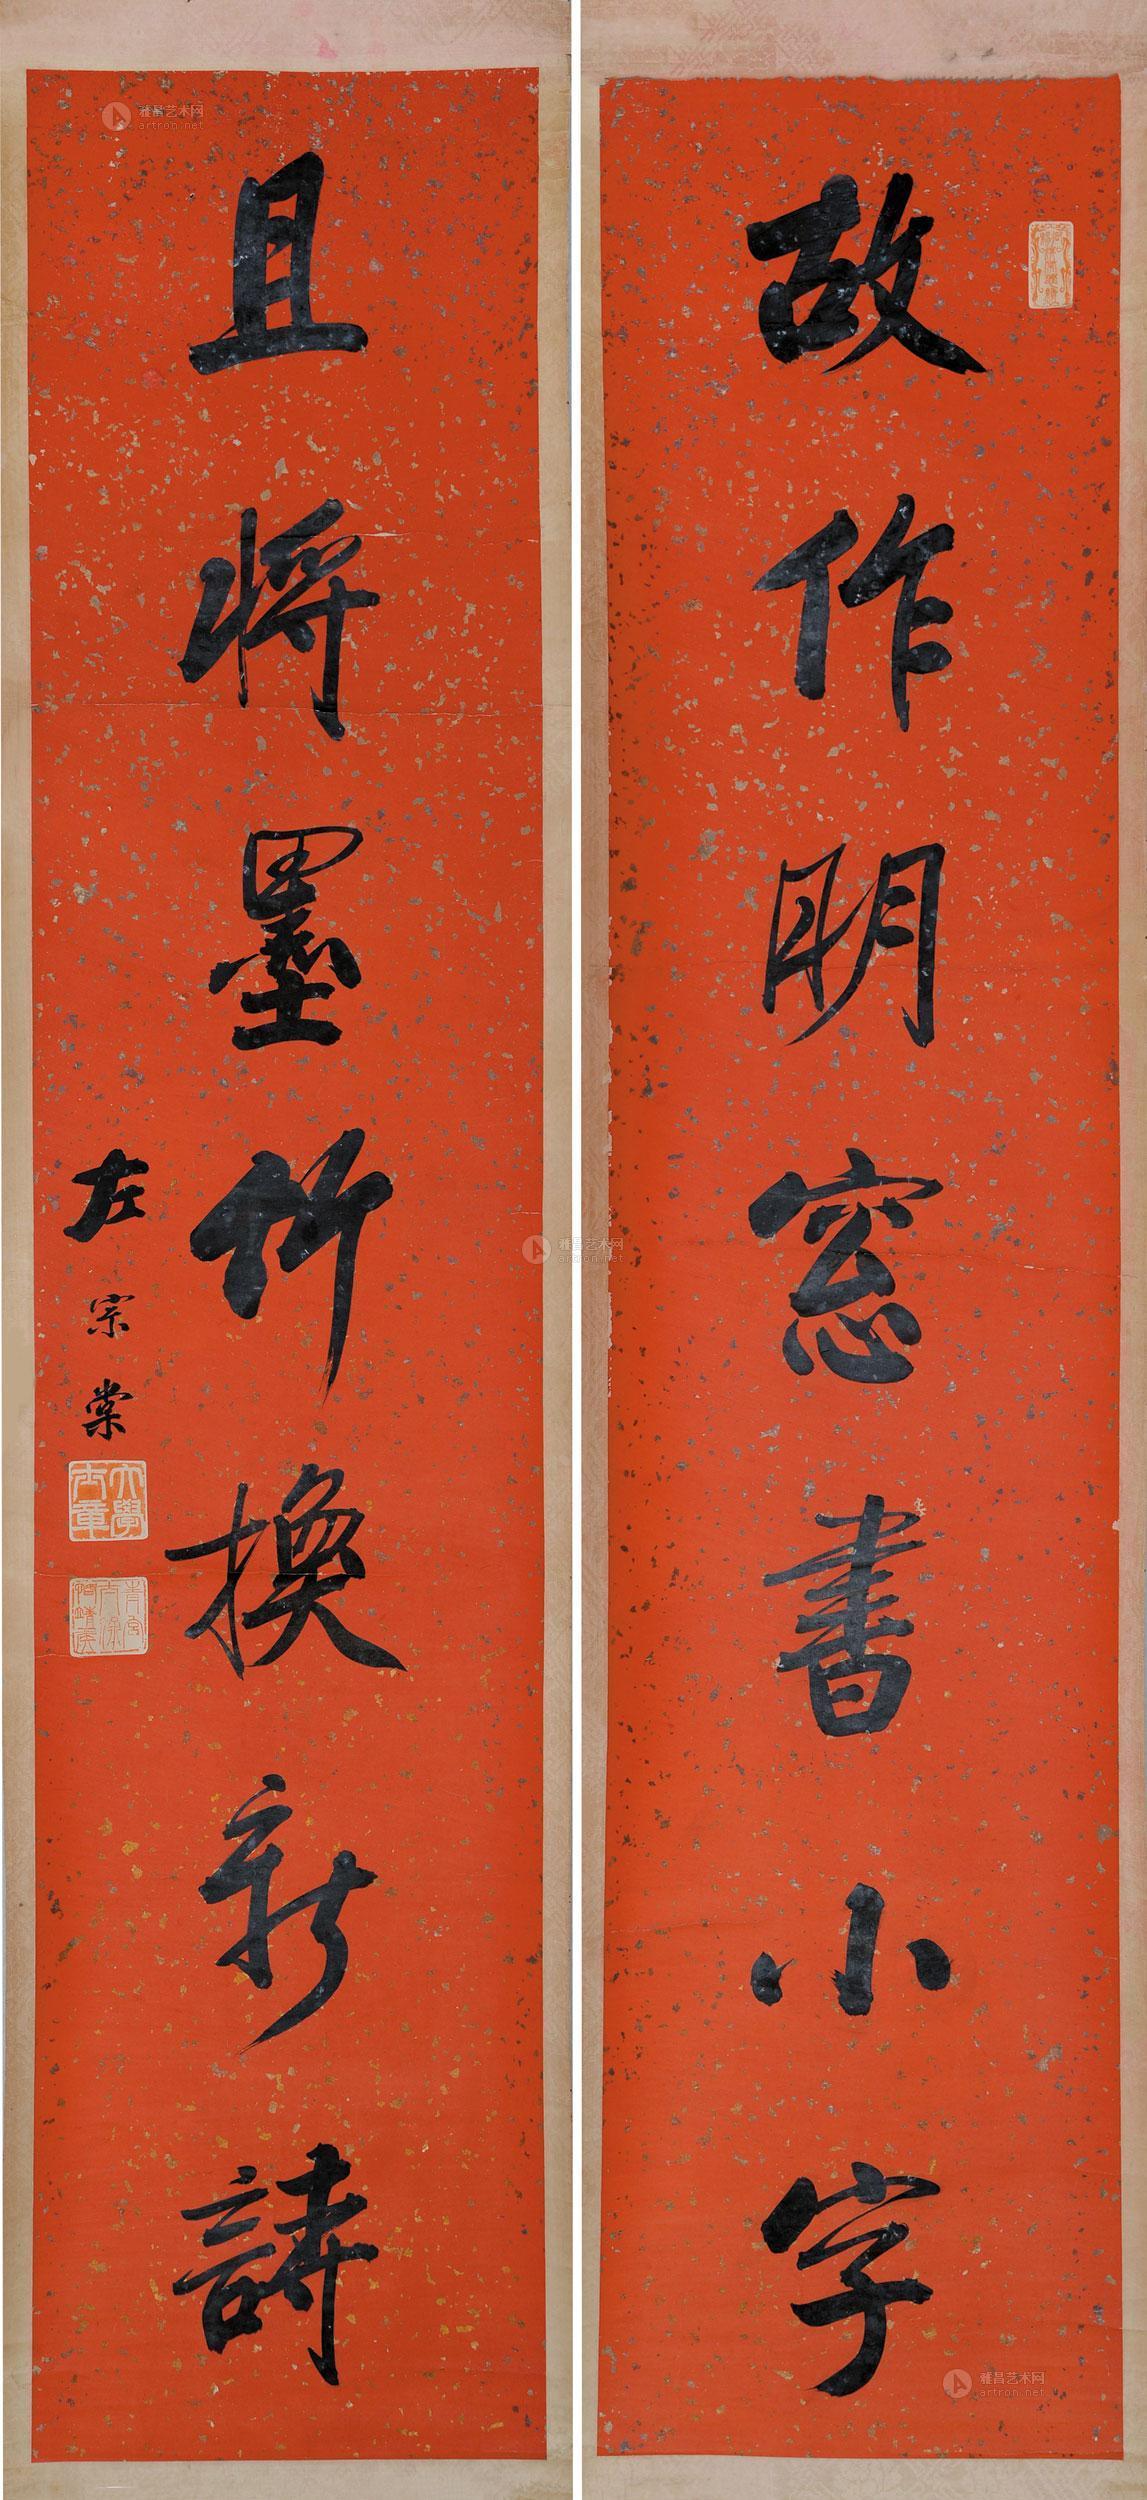 故作明窓書小字
且將墨竹換新詩
左宗棠
大學士章
青宮太保恪靖侯
雅昌艺术网
artron.net
雅昌艺术网
artron.net
雅昌艺术网
artron.net